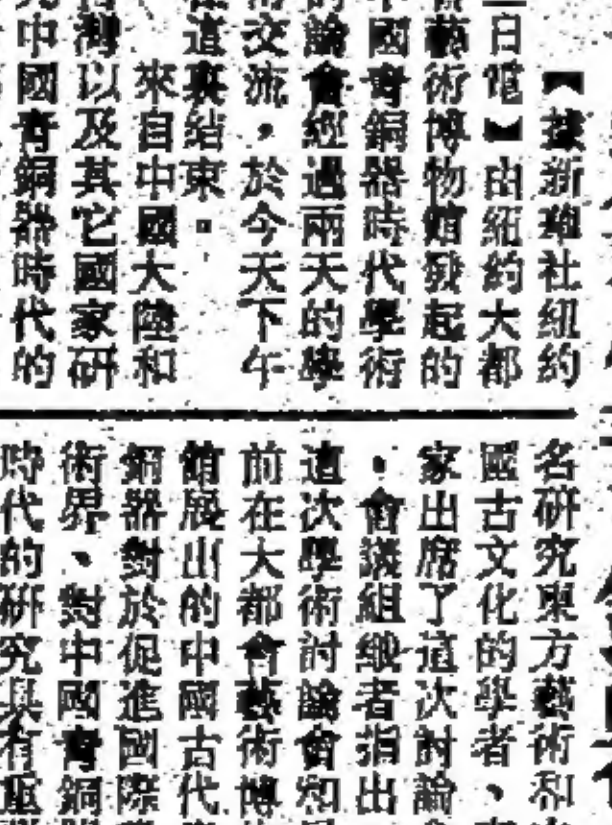 【據新華社紐約
日電】由紐約大都
藝術博物館發起的
國青銅器時代學術
論會經過兩天的學
術交流，於今天下午
這裏結束。
來自中國大陸和
灣以及其它國家研
中國青銅器時代的
名研究東方藝術和
國古文化的學者、
家出席了這次討論
。會議組織者指出
這次學術討論會和
前在大都會藝術博
館展出的中國古代
銅器對於促進國際
術界、對中國青銅
時代的研究具有重